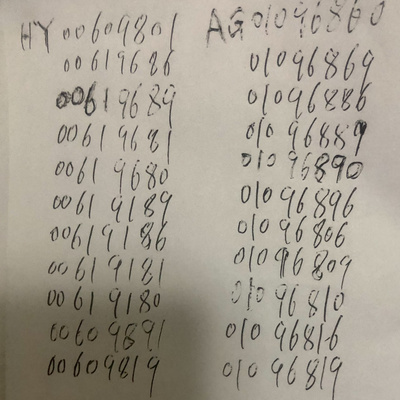 HY 00609801
00619686
00619689
00619681
00619680
00619189
00619186
00619181
00619180
00609891
00609819
AG 01096860
01096869
01096886
01096889
01096890
01096896
01096806
01096809
01096810
01096816
01096819